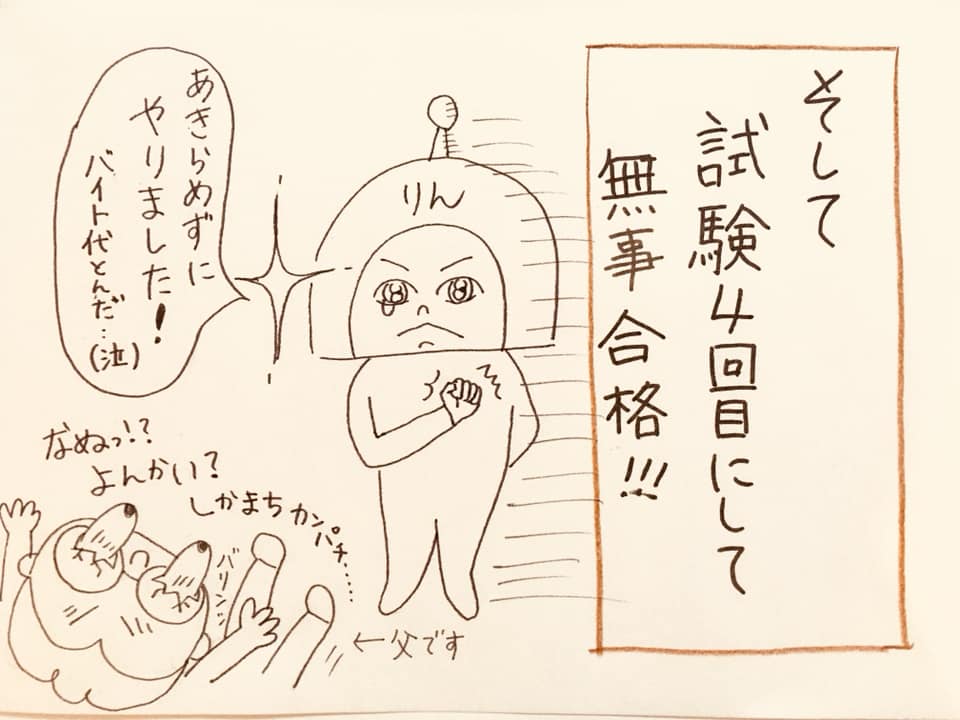 そして
試験4回目にして
無事合格!!!
りん
あきらめずに
やりました!
バイト代とんだ…(泣)
なぬっ!?
よんかい?
しかまちカンパチ……
バリンッ
←父です